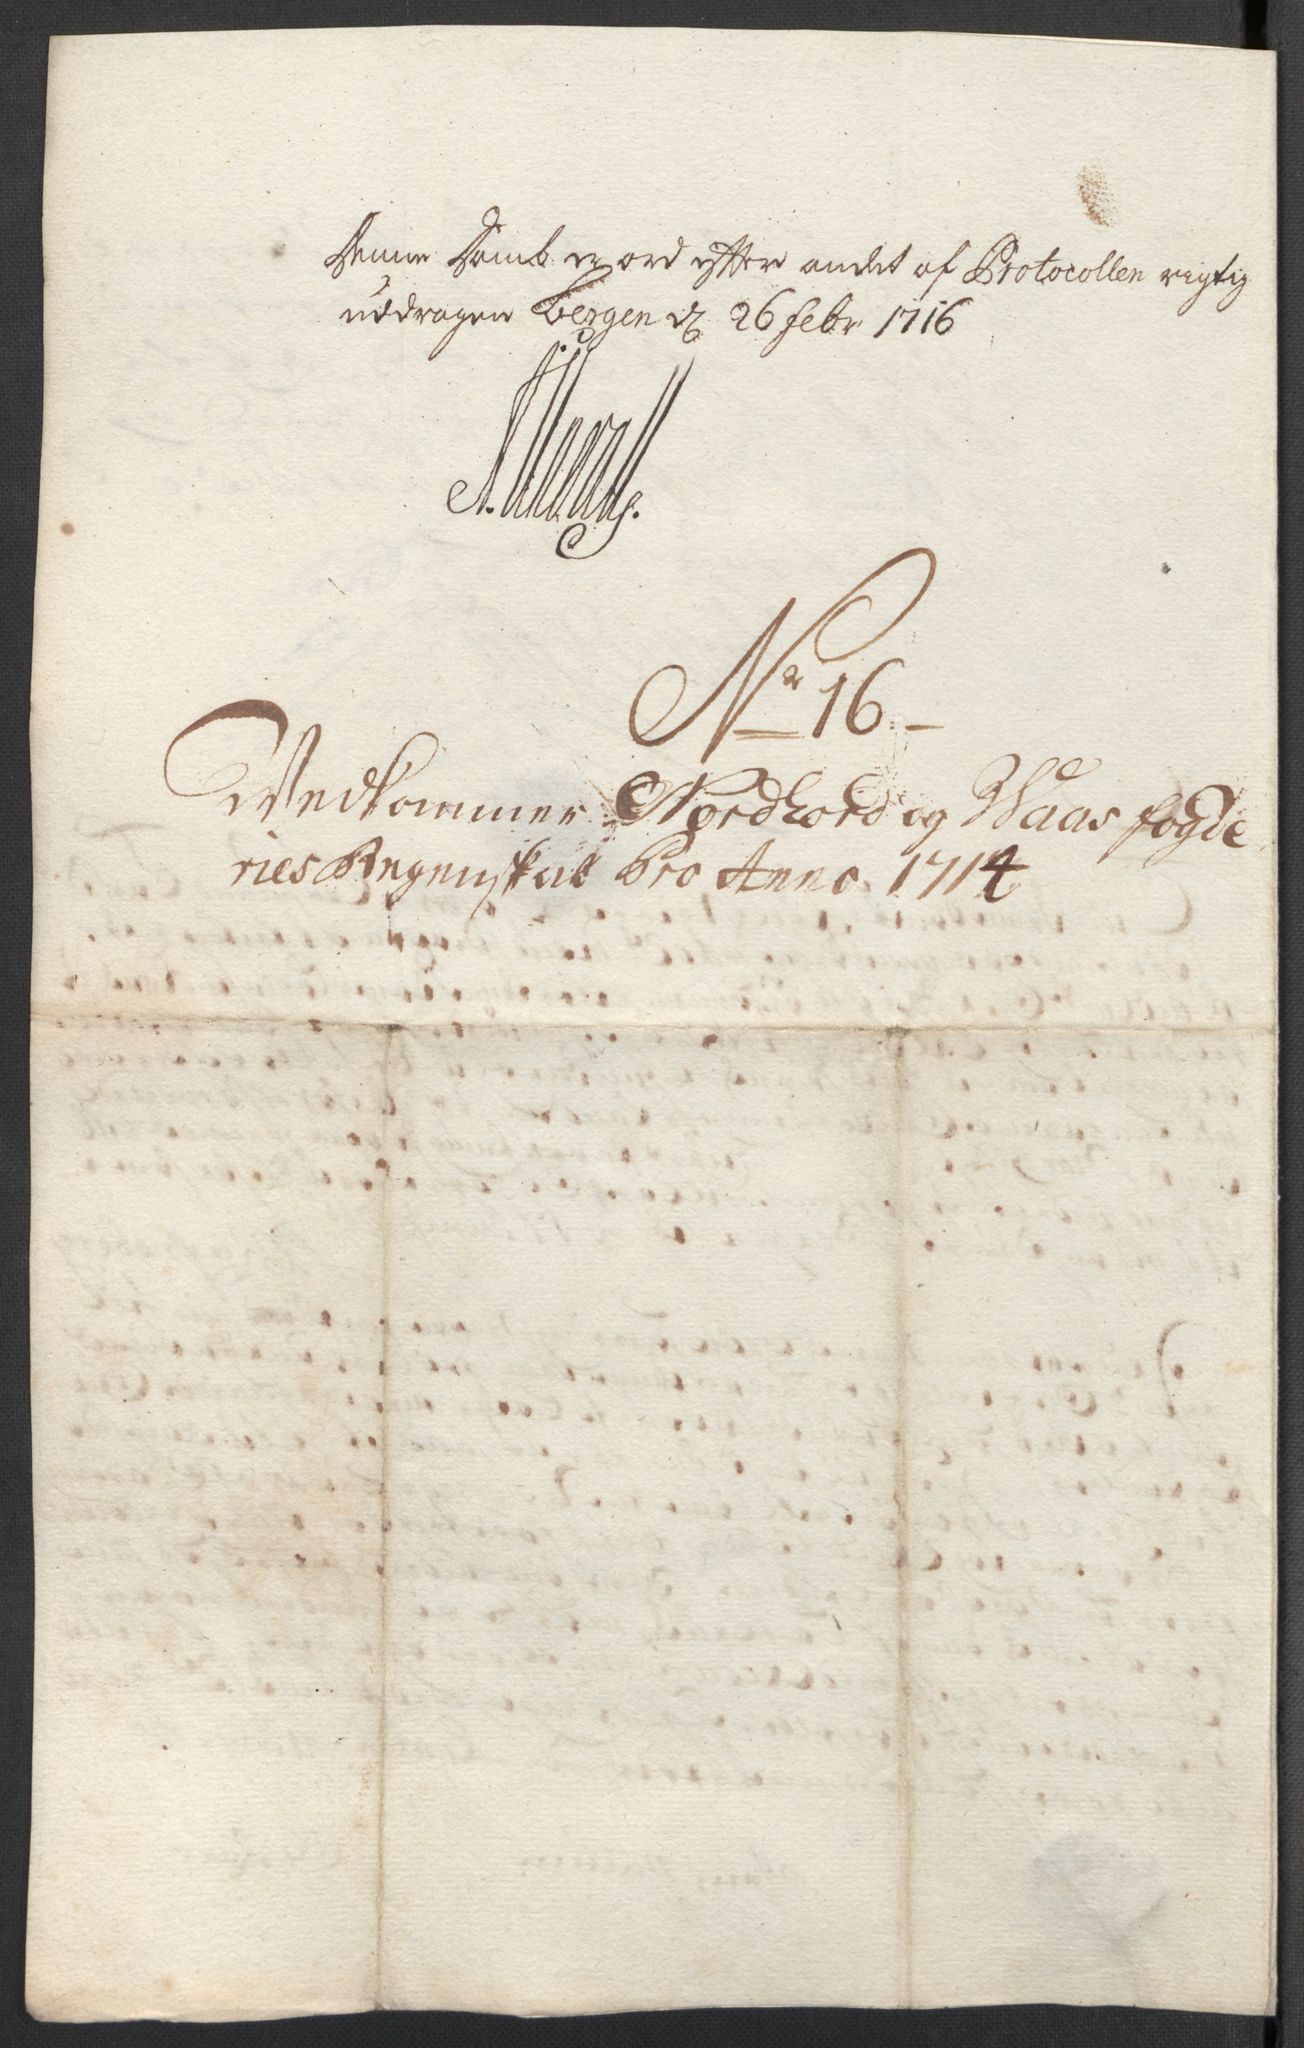 Denne Domb er ord efter andet af Protocollen rigtig
uddragen Bergen d 26 Febr 1716
Nr 16
Vedkommer Nordhord og Waas fogde
ries Regenskab Pro Anno 1714